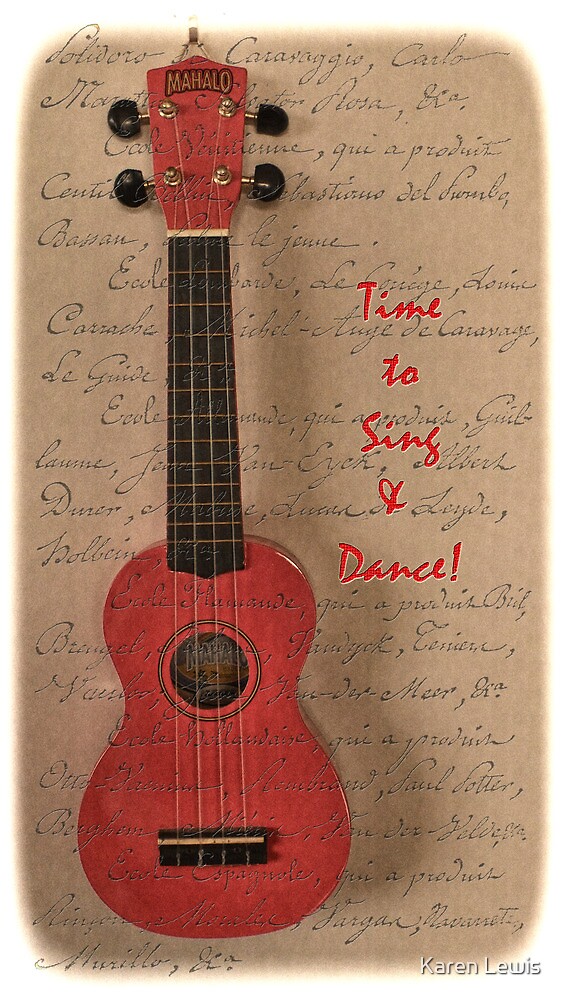 Polidoro de Caravaggio, Carlo
MAHALO
Maratti, Salvator Rosa, &ca.
Ecole Vénitienne, qui a produit
Gentil Bellin, Sebastiano del Piombo,
Bassan, le jeune.
Ecole Lombarde, Le Corége, Louis
Carrache, Michel-Ange de Caravage,
Le Guide, &ca.
Ecole Allemande, qui a produit, Guil-
laume, Jean Van-Eyck, Albert
Durer, Lucas de Leyde,
Holbein, &ca.
Ecole Flamande, qui a produit Bril,
Breugel, Vandyck, Teniers,
Van-der-Meer, &ca.
MAHALO
Ecole hollandaise, qui a produit
Otto-Venius, Rembrand, Paul Potter,
Berghem, Van der-Velde, &ca.
Ecole Espagnole, qui a produit
Rinçon, Vargas, Navarrete,
Murillo, &ca.
Time
to
Sing
&
Dance!
Karen Lewis